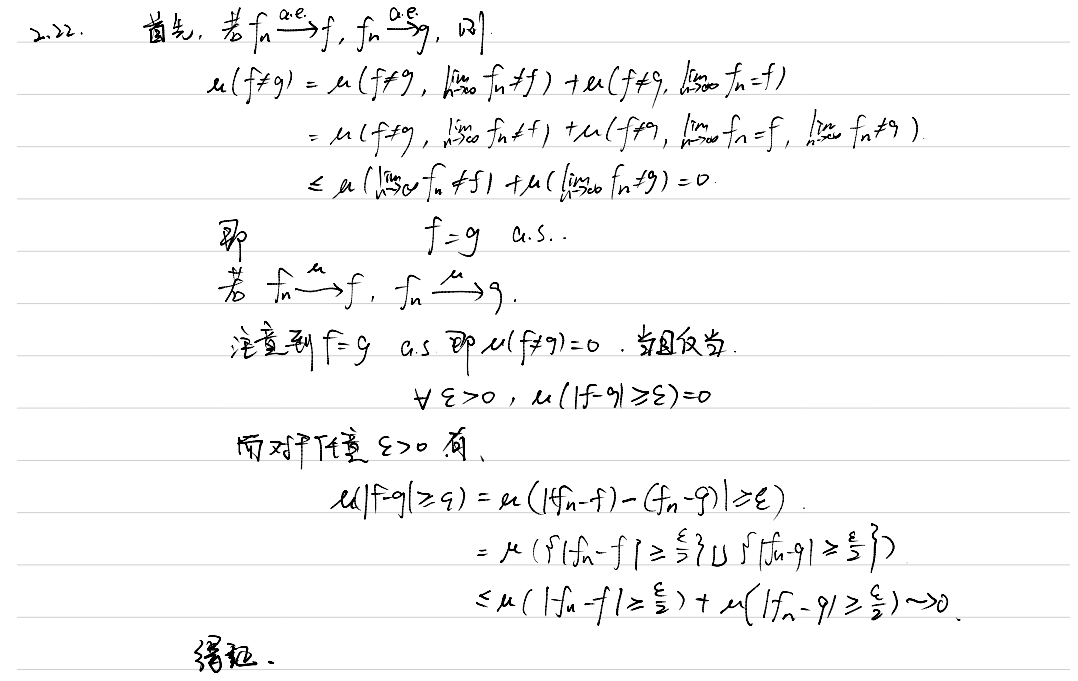 2.22. 首先, 若 fₙ —a.e.→ f, fₙ —a.e.→ g, 则
μ(f≠g) = μ(f≠g, lim_{n→∞} fₙ≠f) + μ(f≠g, lim_{n→∞} fₙ=f)
= μ(f≠g, lim_{n→∞} fₙ≠f) + μ(f≠g, lim_{n→∞} fₙ=f, lim_{n→∞} fₙ≠g).
≤ μ(lim_{n→∞} fₙ≠f) + μ(lim_{n→∞} fₙ≠g) = 0.
即 f=g a.s..
若 fₙ —μ→ f, fₙ —μ→ g.
注意到 f=g a.s. 即 μ(f≠g)=0. 当且仅当.
∀ε>0, μ(|f-g|≥ε)=0
而对于任意 ε>0 有,
μ(|f-g|≥ε) = μ(|(fₙ-f)-(fₙ-g)|≥ε).
= μ({|fₙ-f|≥ε/2}∪{|fₙ-g|≥ε/2})
≤ μ(|fₙ-f|≥ε/2) + μ(|fₙ-g|≥ε/2) → 0.
得证.